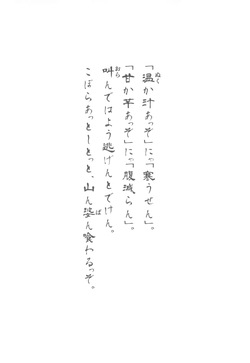 「温か汁あっぞ」に。「寒うせん」。
「甘か芋あっぞ」に。「腹減らん」。
叫んではよう逃げんとでけん。
こぼらあっとーとっと、山ん婆ん喰わるっぞ。